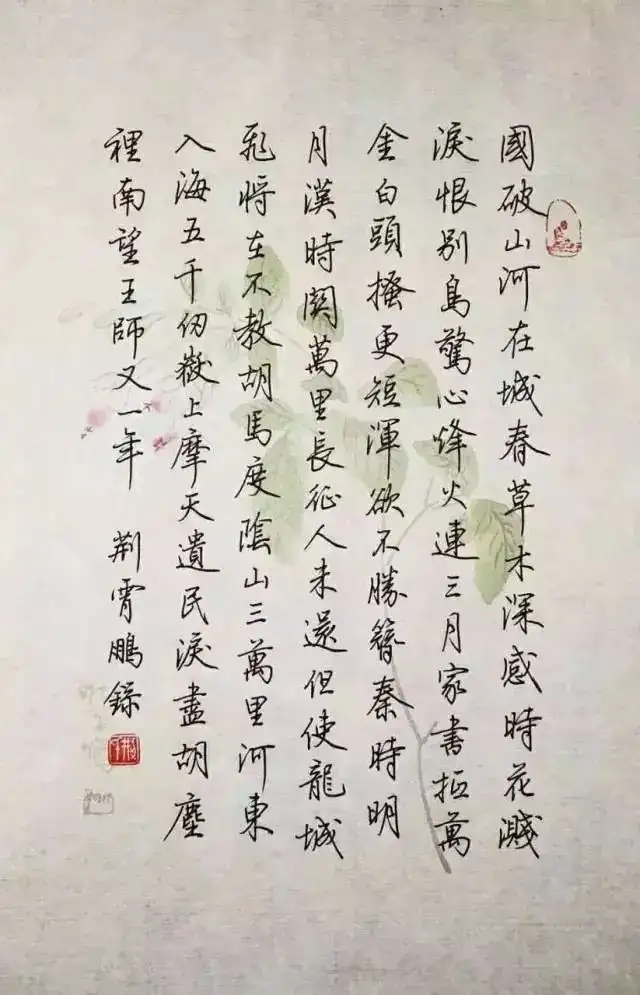 國破山河在城春草木深感時花濺
淚恨別鳥驚心烽火連三月家書抵萬
金白頭搔更短渾欲不勝簪秦時明
月漢時関萬里長征人未還但使龍城
飛將在不教胡馬度陰山三萬里河東
入海五千仞嶽上摩天遺民淚盡胡塵
裡南望王師又一年 荆霄鵬錄